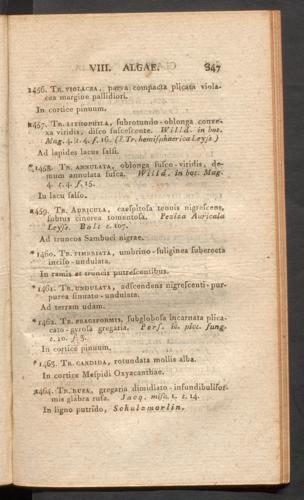 VIII. ALGAE. 347
2456. TR. VIOLACEA, parva compacta plicata viola-
cea margine pallidiori.
In cortice pinuum.
*2457. TR. LITHOPHILA, subrotundo-oblonga conve-
xa viridis, disco fuscescente. Willd. in bot.
Mag. 4. t. 4. f. 16. (T. Tr. hemisphaerica Leyss.)
Ad lapides lacus salsi.
*2458. TR. ANNULATA, oblonga fusco-viridis, de-
mum annulata fusca. Willd. in bot. Mag.
4. t. 4. f. 15.
In lacu salso.
2459. TR. AURICULA, caespitosa tenuis nigrescens,
subtus cinerea tomentosa. Peziza Auricula
Leyss. Bolt t. 107.
Ad truncos Sambuci nigrae.
*2460. TR. FIMBRIATA, umbrino-fuliginea suberecta
inciso-undulata.
In ramis et truncis putrescentibus.
*2461. TR. UNDULATA, adscendens nigrescenti-pur-
purea sinuato-undulata.
Ad terram udam.
*2462. TR. FRAGIFORMIS, subglobosa incarnata plica-
cato-gyrosa gregaria. Pers. ic. pict. fung.
t. 10. f. 3.
In cortice pinuum.
*2463. TR. CANDIDA, rotundata mollis alba.
In cortice Mespidi Oxyacanthae.
2464. TR. RUFA, gregaria dimidiato-infundibulifor-
mis glabra rufa. Jacq. misc. 1. t. 14.
In ligno putrido, Schulzmorlin.